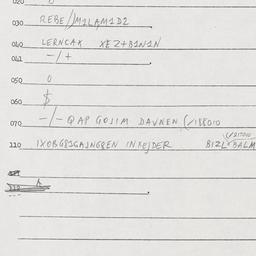 020 0
030 REBE//M1LAM1D2
040 LERNCAK XEZ+B1N1N
041 -/+
050 0
060 $
070 -/- QAP GOJIM DAVNEN (/188010
110 1XOBG81GAJNGBEN INBEJDER BIZL DALM